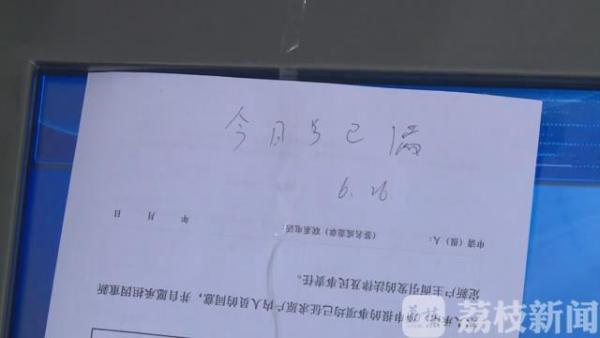 今日号已满
6.26
人承诺
申报的事项均已征求原户内人员的同意，并自愿承担因重新
定新户主而引发的法律及民事责任。
申请（报）人： （签名或盖章）联系电话： 年 月 日
荔枝新闻